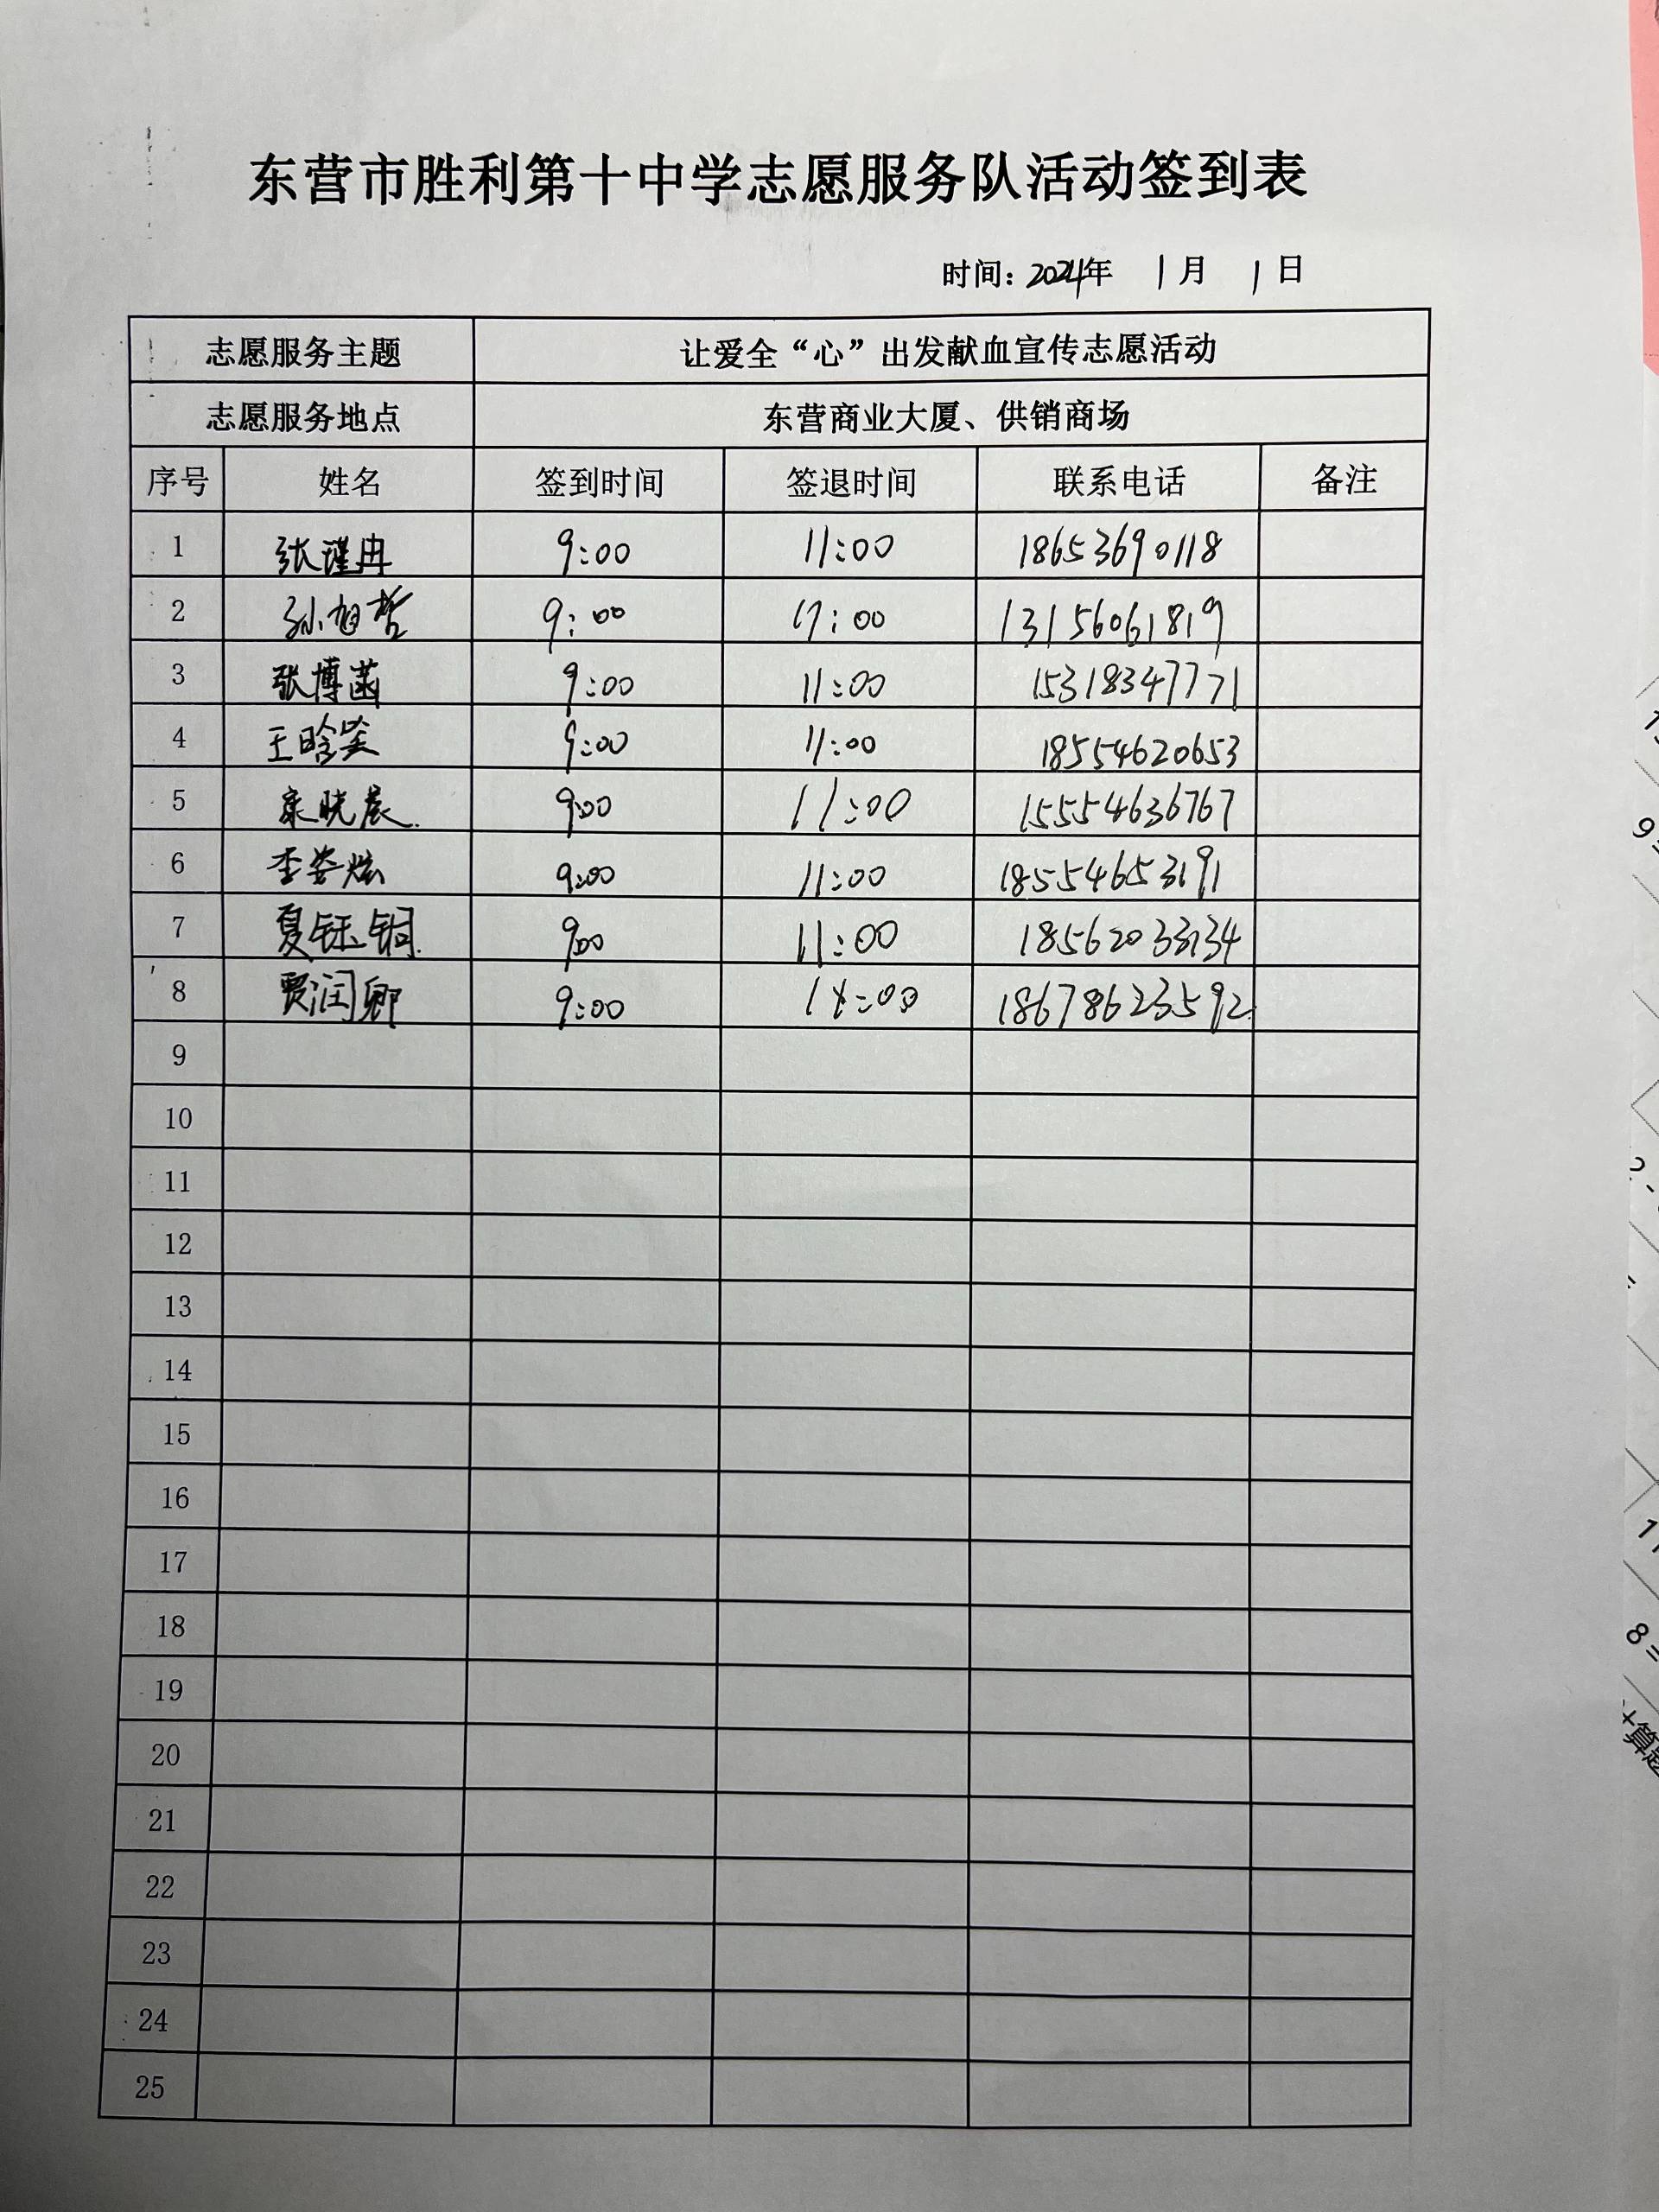 东营市胜利第十中学志愿服务队活动签到表
时间: 2024年 1月 1日
志愿服务主题 让爱全“心”出发献血宣传志愿活动
志愿服务地点 东营商业大厦、供销商场
序号 姓名 签到时间 签退时间 联系电话 备注
1 张瑾冉 9:00 11:00 18653690118
2 孙旭哲 9:00 13156061819
3 张博菡 9:00 11:00 15318347771
4 王晗笑 9:00 11:00 18554620653
5 晓晨 9:00 11:00 15554636767
6 李姿炫 9:00 11:00 18554653191
7 夏钰锏 9:00 11:00 18562033134
8 贾润卿 9:00 18678623592
9
10
11
12
13
14
15
16
17
18
19
20
21
22
23
24
25